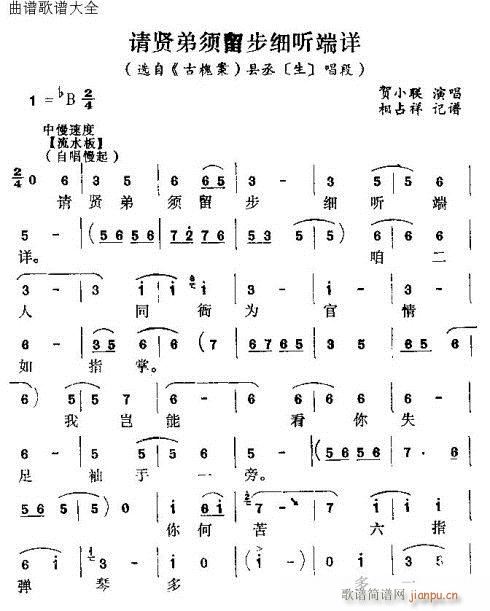 曲谱歌谱大全
请贤弟须留步细听端详
(选自《古槐案》县丞〔生〕唱段)
1=♭B 2/4
贺小联 演唱
相占祥 记谱
中慢速度
【流水板】
(自唱慢起)
2/4 0 6 | 3 5 | 6 65 | 3 - | 3 5 | 5 6 |
请 贤 弟 须 留 步 细 听 端
5 - | (56 56 | 72 76 | 56 5) | 6 6 |
详。 咱 二
3 - | 3 i | i i | 3 - | 3 3 | i i |
人 同 衙 为 官 情
6 - | 6 35 | 6 6 | 6 (7 | 67 65 | 35 67 |
如 指 掌。
6) 5 | 5 7 | 6 - | 6 6 | 7 5 |
我 岂 能 看 你 失
6 - | 5 6 | 7 6 | 5 - | 5 (6 | 56 76 |
足 袖 于 一 旁。
56 56 | 5) i | i 6i | 7 - | 7 i | i 6 |
你 何 苦 六 指
弹 琴 多 多 一
歌谱简谱网
jianpu.cn